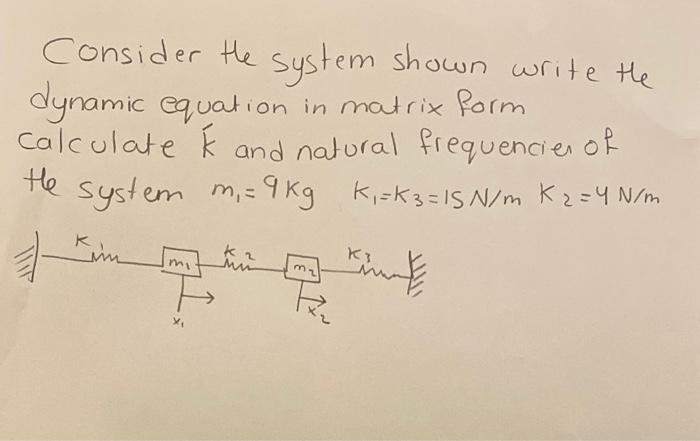 Consider the system shown write the
dynamic equation in matrix form
calculate K̃ and natural frequencies of
the system m₁=9Kg K₁=K₃=15N/m K₂=4N/m
K₁ m₁ K₂ m₂ K₃
x₁ x₂